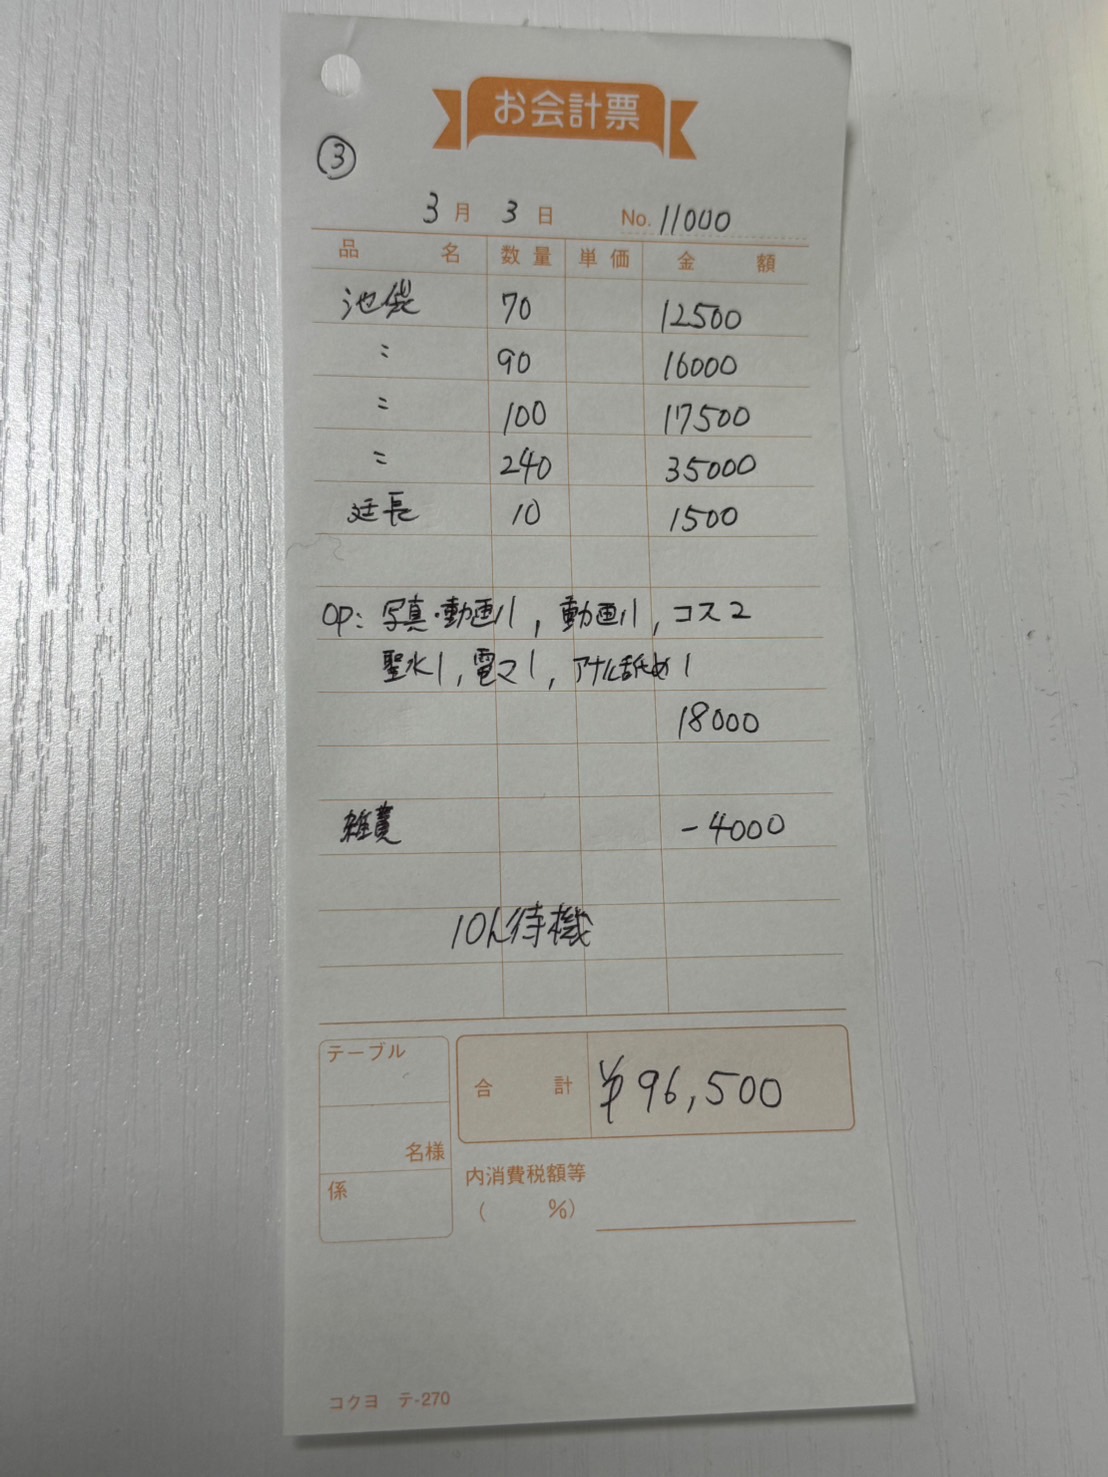 お会計票
③
3月 3日 No. 11000
品名 数量 単価 金額
池袋 70 12500
〃 90 16000
〃 100 17500
〃 240 35000
延長 10 1500
OP: 写真・動画1, 動画1, コス2
聖水1, 電マ1, アナル舐め1
18000
雑費 -4000
10h待機
テーブル
名様
係
合計 ¥96,500
内消費税額等
( %)
コクヨ テ-270